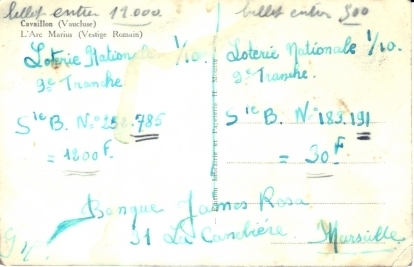 billet entier 12.000
billet entier 300
Cavaillon (Vaucluse)
L'Arc Marius (Vestige Romain)
Loterie Nationale 1/10.
9e Tranche
Sie B. No 252.785
= 1200 F.
Loterie Nationale 1/10.
9e Tranche.
Sie B. No 183.191
= 30 F
Banque James Rosa
31 La Canebière Marseille